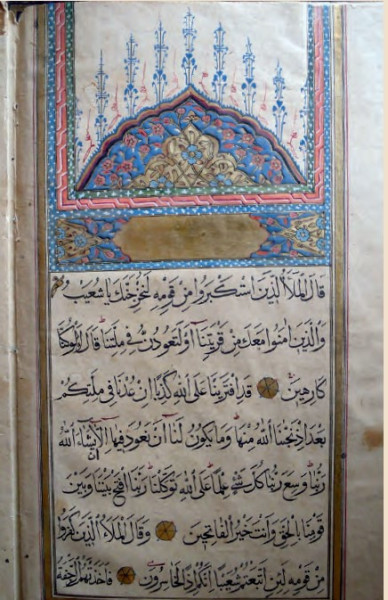 قَالَ الْمَلَأُ الَّذِينَ اسْتَكْبَرُوا مِنْ قَوْمِهِ لَنُخْرِجَنَّكَ يَا شُعَيْبُ
وَالَّذِينَ اٰمَنُوا مَعَكَ مِنْ قَرْيَتِنَا اَوْ لَتَعُودُنَّ فِي مِلَّتِنَا قَالَ اَوَلَوْ كُنَّا
كَارِهِينَ قَدِ افْتَرَيْنَا عَلَى اللهِ كَذِبًا اِنْ عُدْنَا فِي مِلَّتِكُمْ
بَعْدَ اِذْ نَجّٰنَا اللهُ مِنْهَا وَمَا يَكُونُ لَنَا اَنْ نَعُودَ فِيهَا اِلَّا اَنْ يَشَاءَ اللهُ
رَبُّنَا وَسِعَ رَبُّنَا كُلَّ شَيْءٍ عِلْمًا عَلَى اللهِ تَوَكَّلْنَا رَبَّنَا افْتَحْ بَيْنَنَا وَبَيْنَ
قَوْمِنَا بِالْحَقِّ وَاَنْتَ خَيْرُ الْفَاتِحِينَ وَقَالَ الْمَلَأُ الَّذِينَ كَفَرُوا
مِنْ قَوْمِهِ لَئِنِ اتَّبَعْتُمْ شُعَيْبًا اِنَّكُمْ اِذًا لَخَاسِرُونَ فَاَخَذَتْهُمُ الرَّجْفَةُ